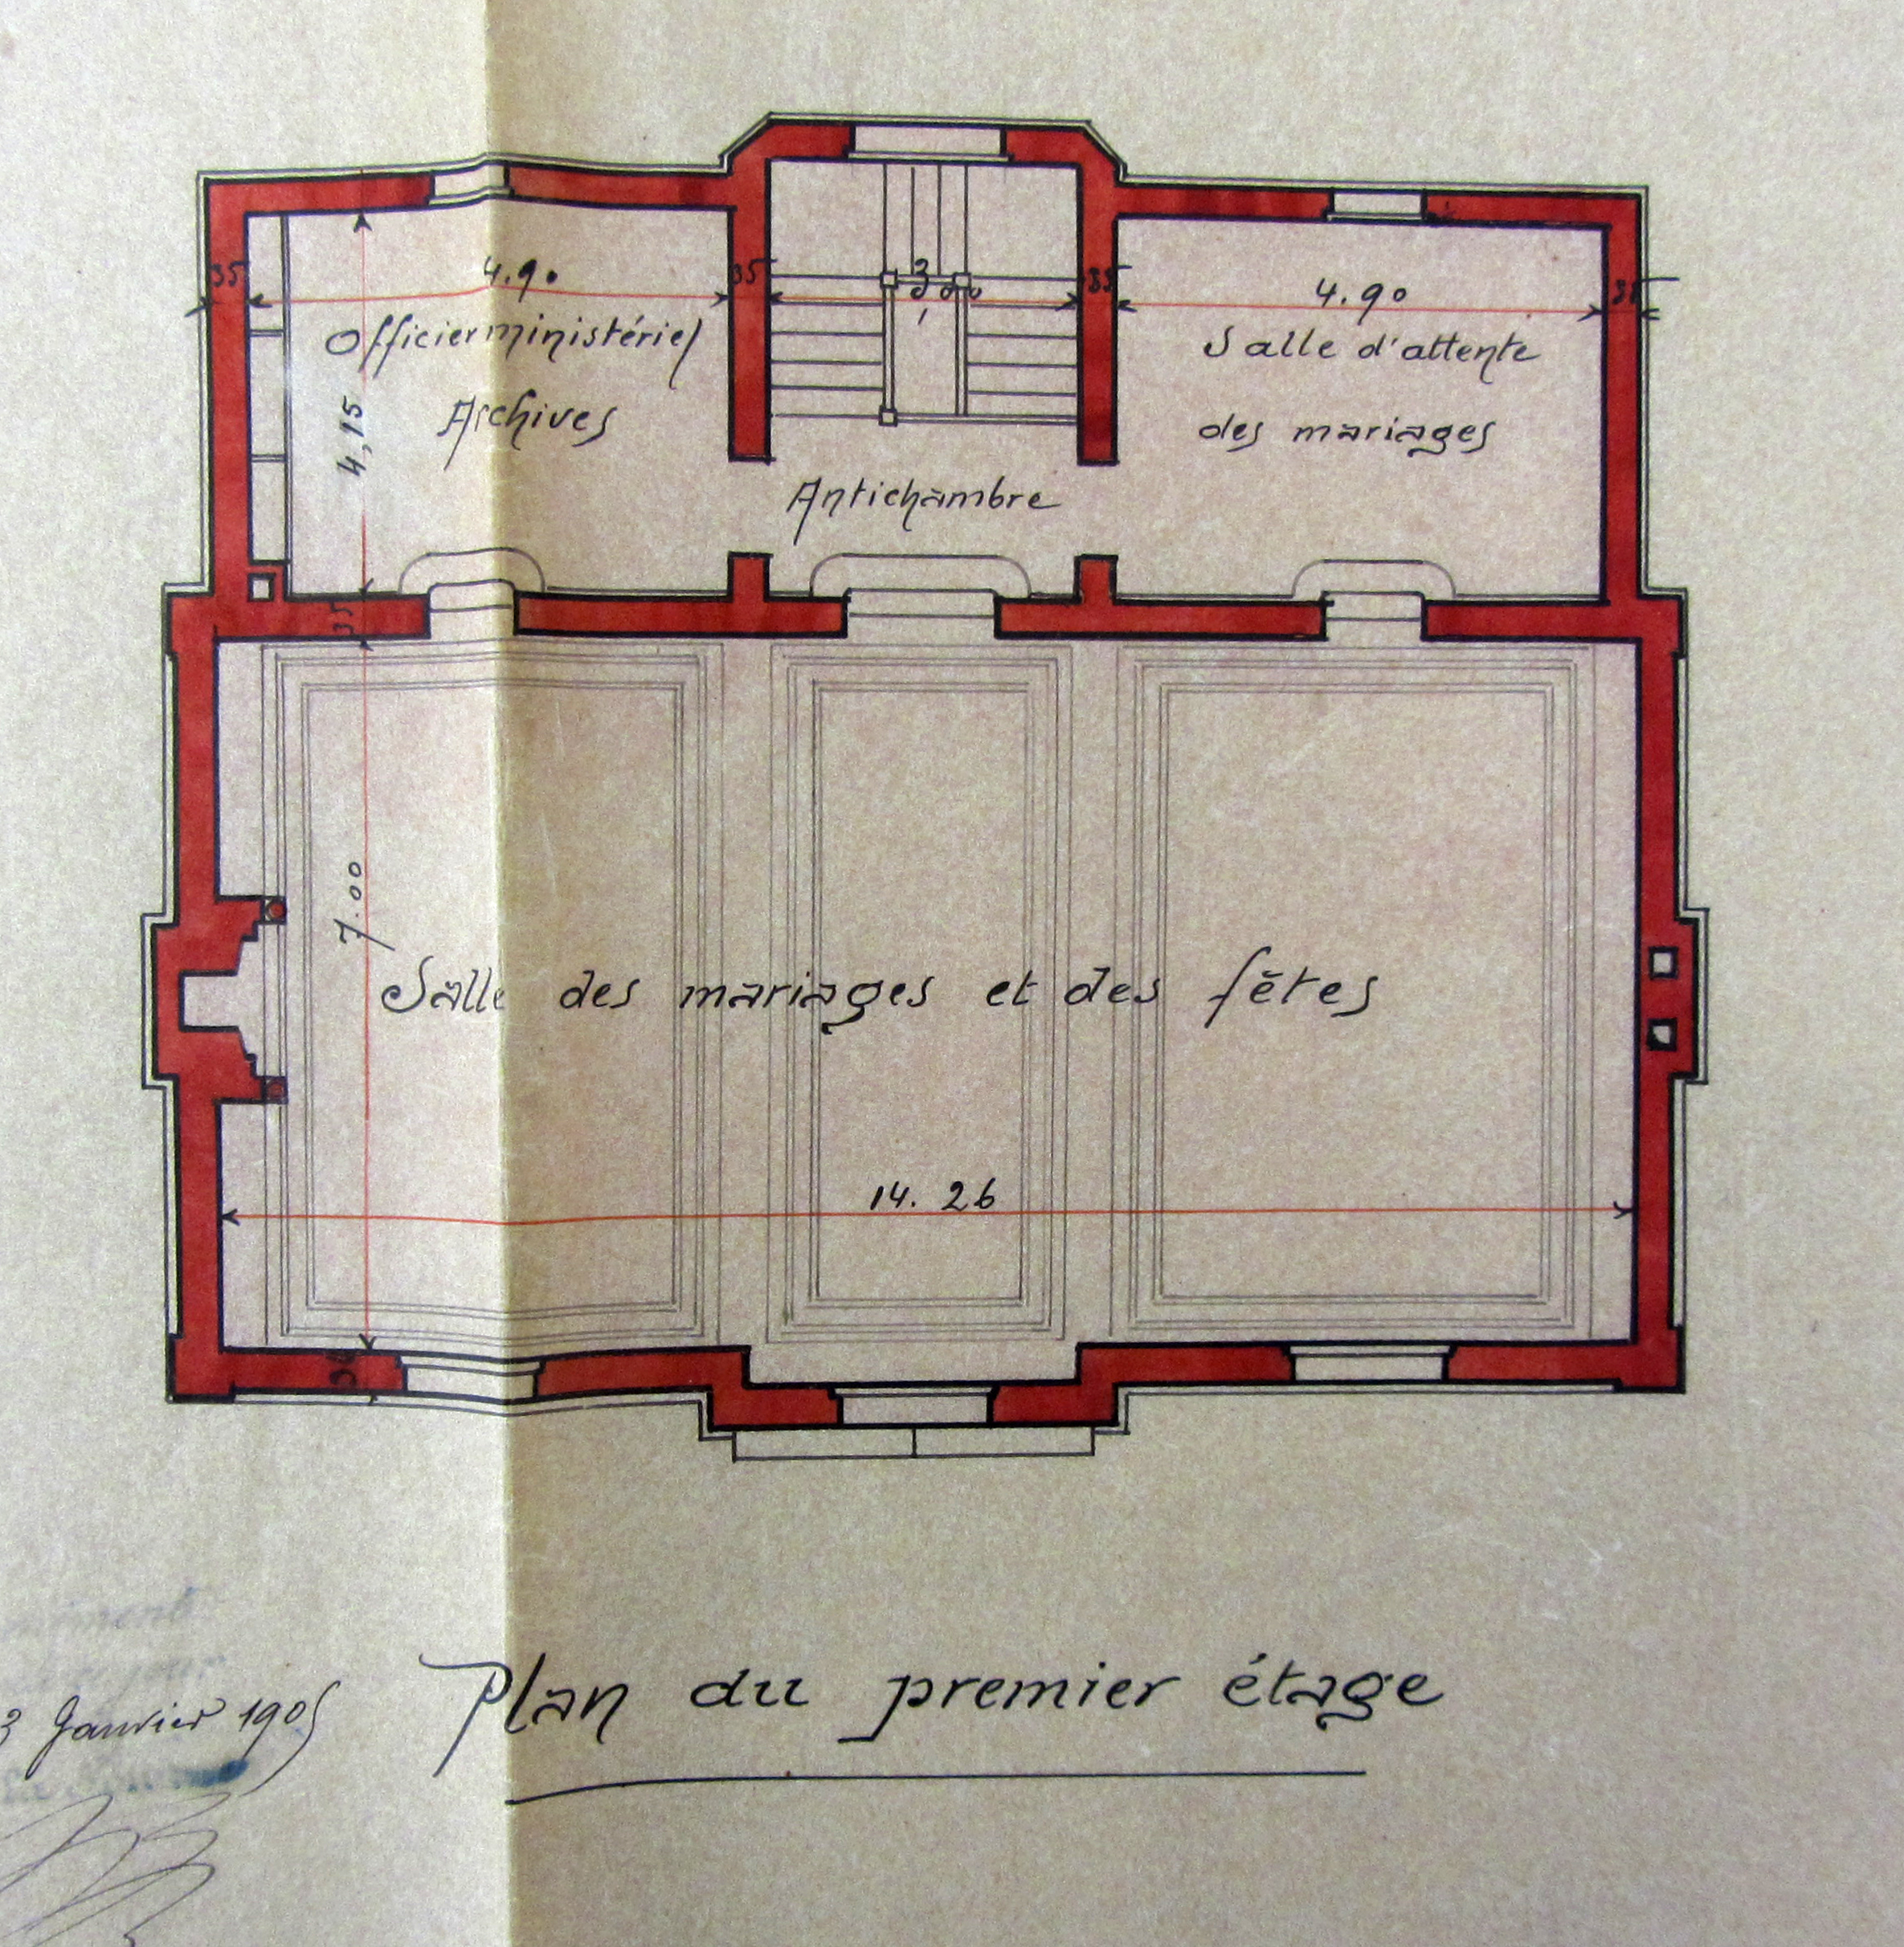 35
4.90
35
35
4.90
Officier ministériel
Archives
4,15
Salle d'attente
des mariages
Antichambre
35
7.00
Salle des mariages et des fêtes
14.26
Plan du premier étage
3 Janvier 1905